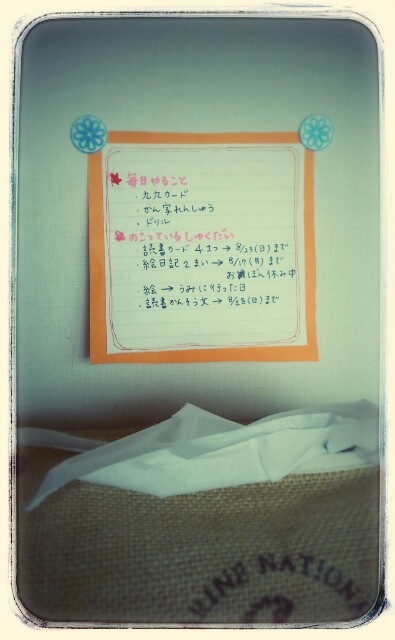 毎日やること
・九九カード
・かん字れんしゅう
・ドリル
のこっているしゅくだい
・読書カード 4さつ → 8/23(日)まで
・絵日記2まい → 8/17(月)まで
お盆休み中
・絵 → うみに行った日
・読書かんそう文 → 8/23(日)まで
RINE NATIONA